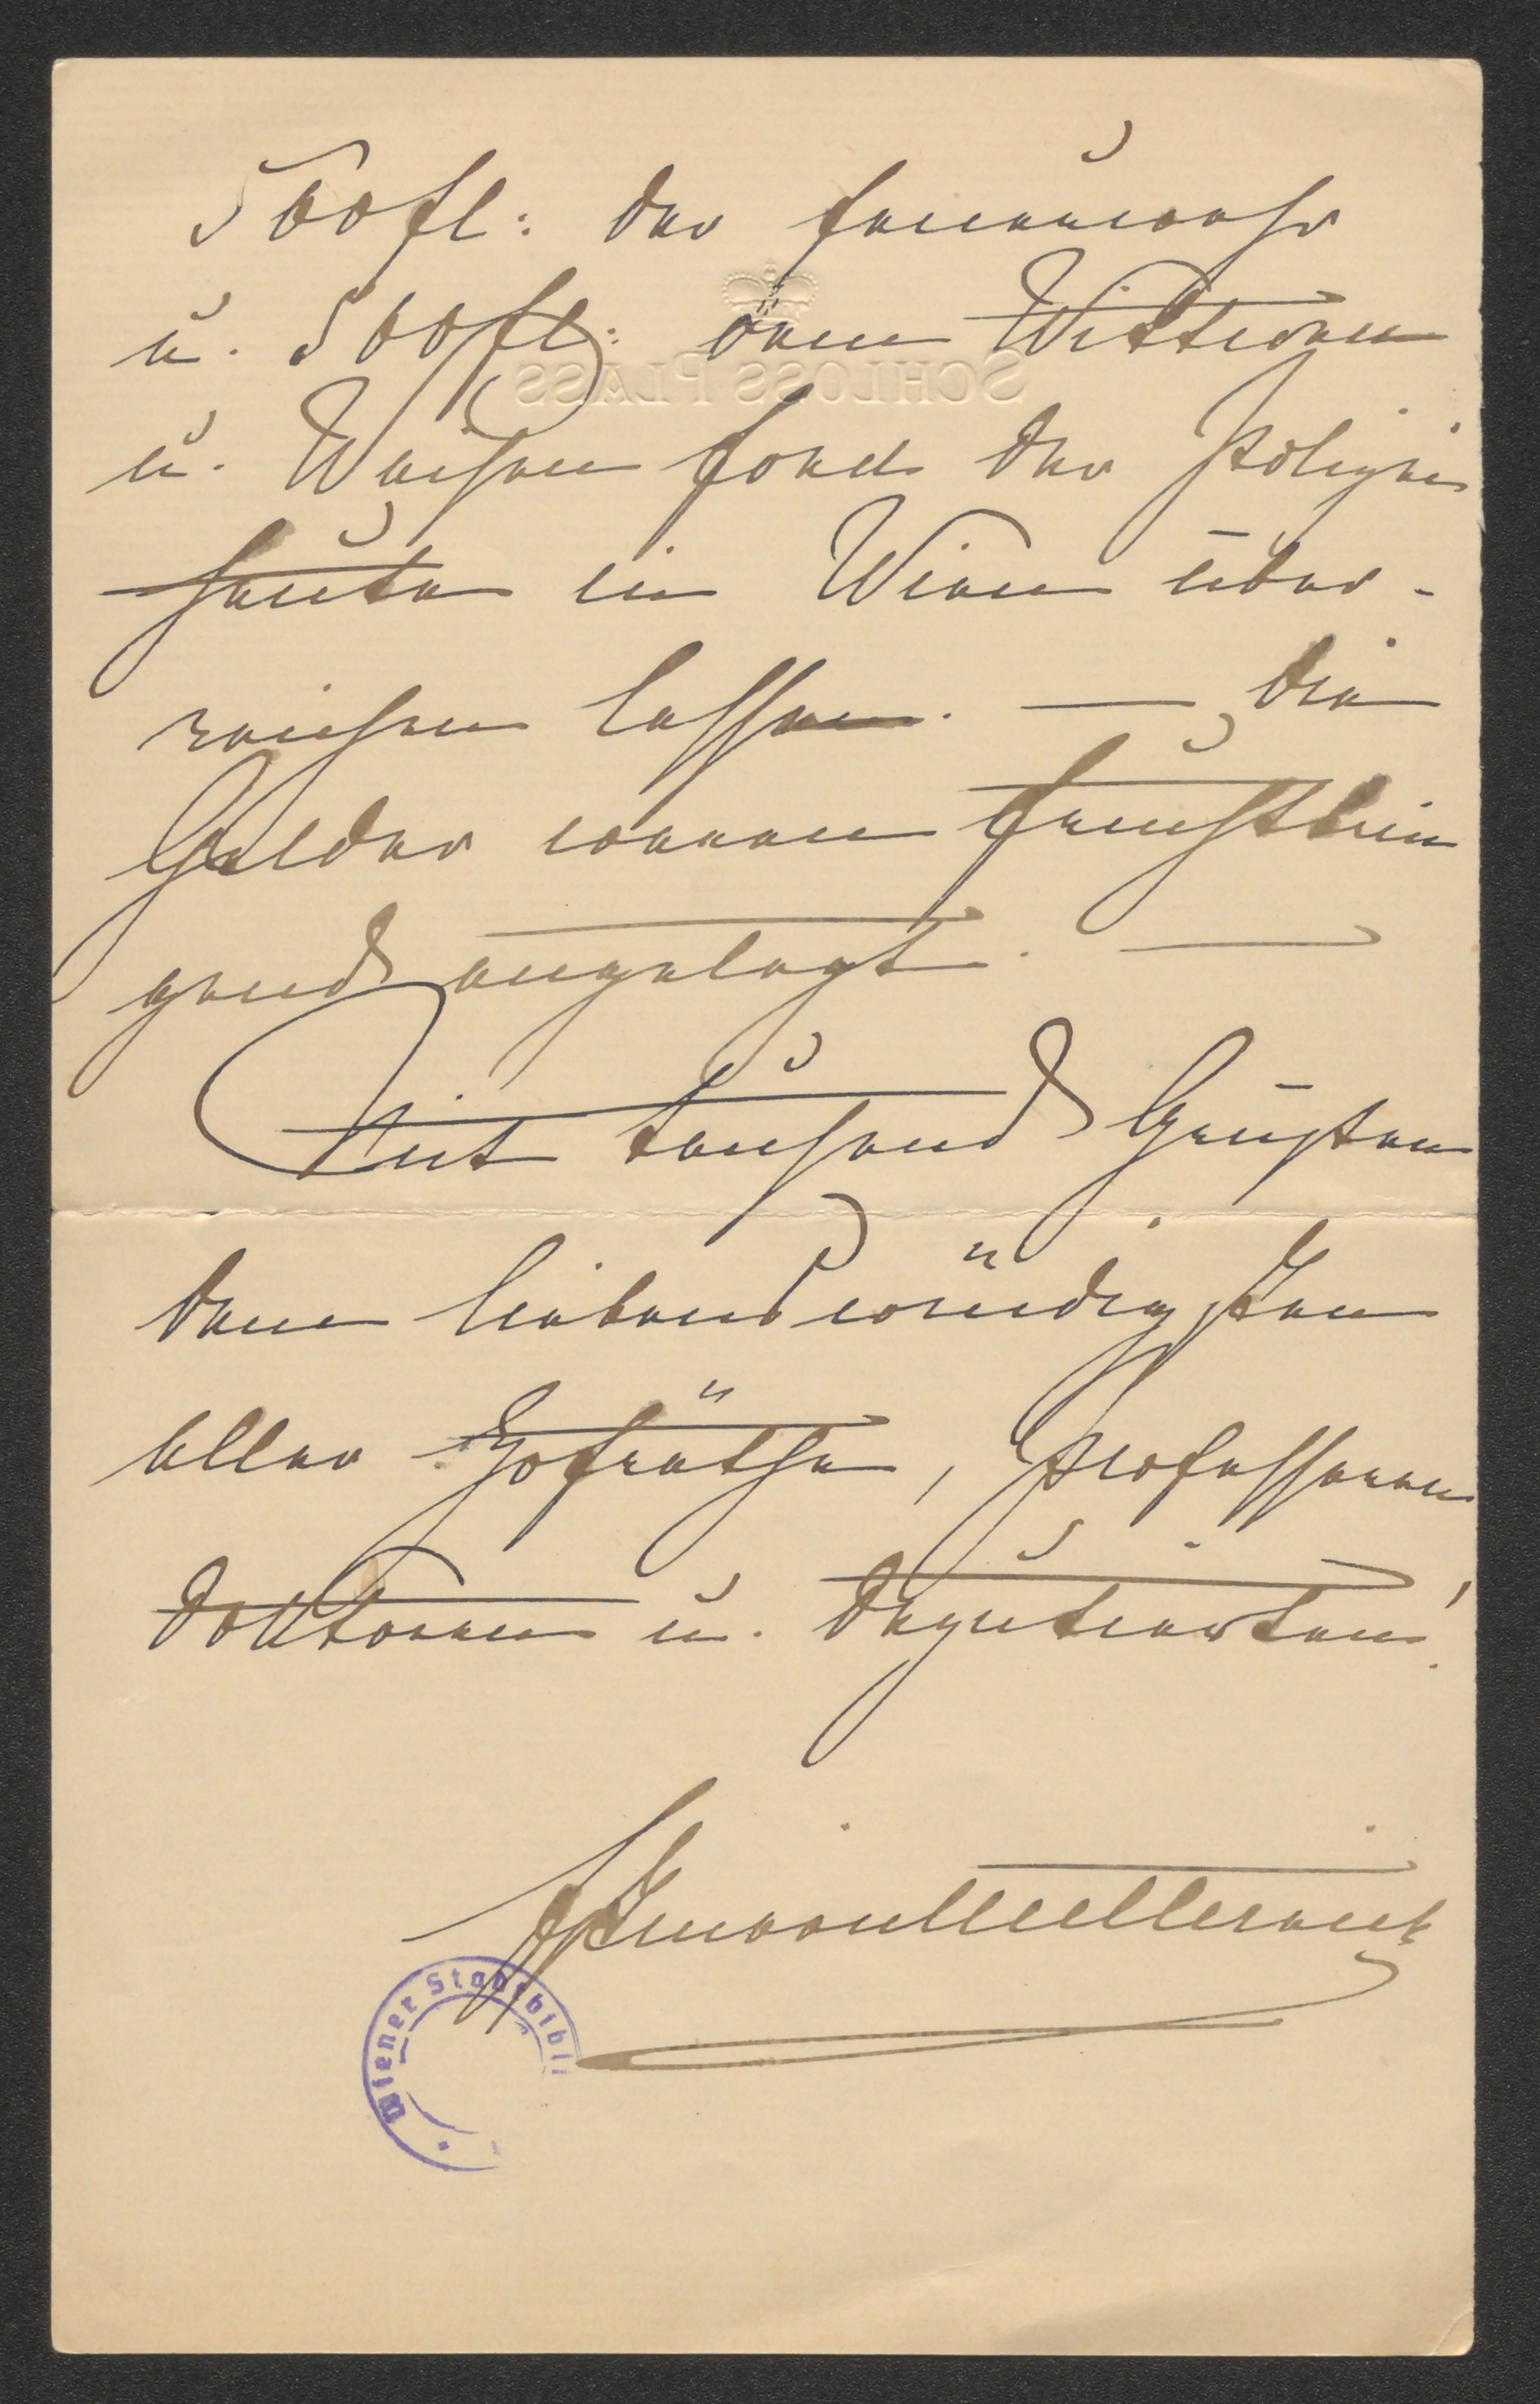 500 fl: der Feuerwehr
SCHLOSS PLASS
u. 500 fl: dem Wittwen
u. Waisen fond der Polizei
leute in Wien über-
reichen lassen. — Die
Gelder waren fruchtbrin
gend angelegt. —
Mit tausend Grüßen
dem liebenswürdigsten
aller Hofräthe, Professoren
Doktoren u. Deputierten!
Wiener Stadtbibli